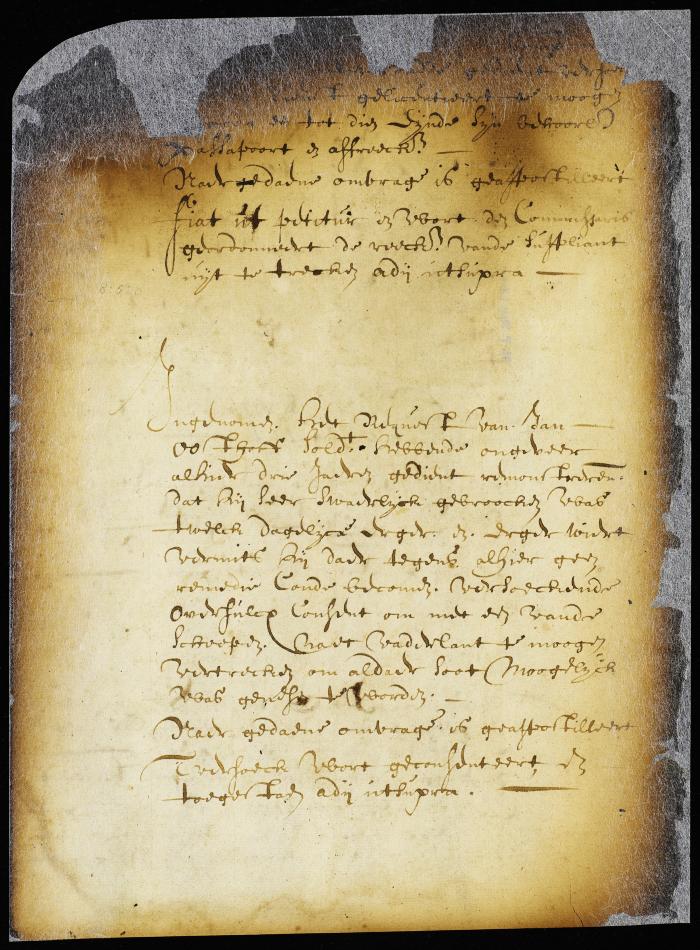 gedient versz
gelicentieert te moogen
en tot dien Eynde syn behoorl:
Passapoort en affreeck: —
Naer gedaene ombrage is geappostilleert
fiat ut petitur en wort den Commissaris
geordonneert de reeck: vande suppliant
uyt te trecken adij utsupra —
Ingenomen het Request van Jan —
Oosthoff sold:t hebbende ongeveer
alhier drie Jaeren gedient remonstreren
dat hij seer swaerlyck gebroocken was
twelck dagelycx erger en erger wiert
vermits hij daer tegens alhier geen
remedie Conde becomen. versoeckende
oversulcx Consent om met een vande
scheepen Naer vaderlant te moogen
vertrecken om aldaer soot Moogelyck
was genesen te worden. —
Naer gedaene ombrage is geappostilleert
Tversoeck wort geconsenteert, en
toegestaen adij utsupra. —